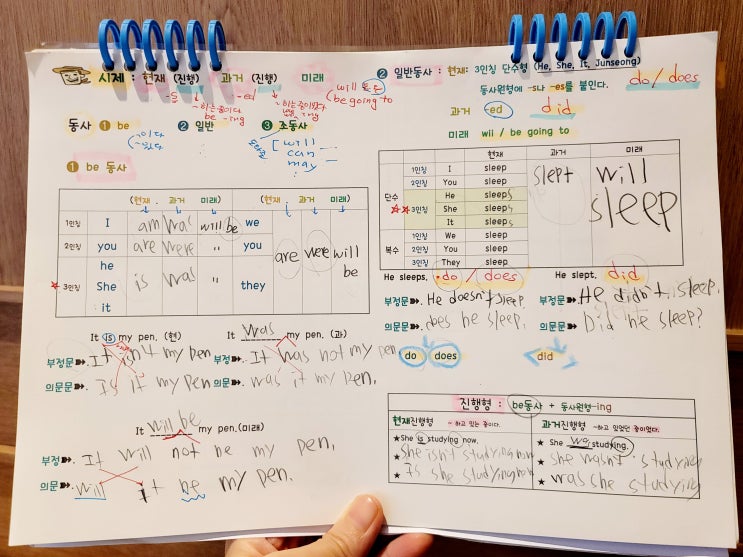 시제 : 현재 (진행) 과거 (진행) 미래
-s -ed
~하는 중이다 be -ing
~하는 중이었다 -ing
(will 또는 be going to)
동사 ① be ② 일반 ③ 조동사
이다
~있다
will
can
may
① be 동사
(현재. 과거. 미래) (현재. 과거. 미래)
1인칭 I am was will be we are were will be
2인칭 you are were " you
3인칭 he She it is was " they
It is my pen. (현)
부정문 It isn't my pen
의문문 Is it my pen
It was my pen. (과)
부정문 It was not my pen.
의문문 was it my pen.
It will be my pen.(미래)
부정 It will not be my pen.
의문 will it be my pen.
② 일반동사 : 현재: 3인칭 단수형 (He, She, It, Junseong)
동사원형에 -s나 -es를 붙인다.
do / does
과거 -ed did
미래 wii / be going to
현재 과거 미래
단수 1인칭 I sleep slept will sleep
2인칭 You sleep
3인칭 He sleeps
She sleeps
It sleeps
복수 1인칭 We sleep
2인칭 You sleep
3인칭 They sleep
He sleeps. do / does
부정문 He doesn't sleep.
의문문 does he sleep.
do does
He slept. did
부정문 He didn't sleep.
의문문 Did he sleep?
did
진행형 : be동사 + 동사원형-ing
현재진행형 ~ 하고 있는 중이다.
★She is studying now.
★She isn't studying now
★Is she studying now
과거진행형 ~하고 있었던 중이었다.
★ She was studying.
★ she wasn't studying
★ was she studying